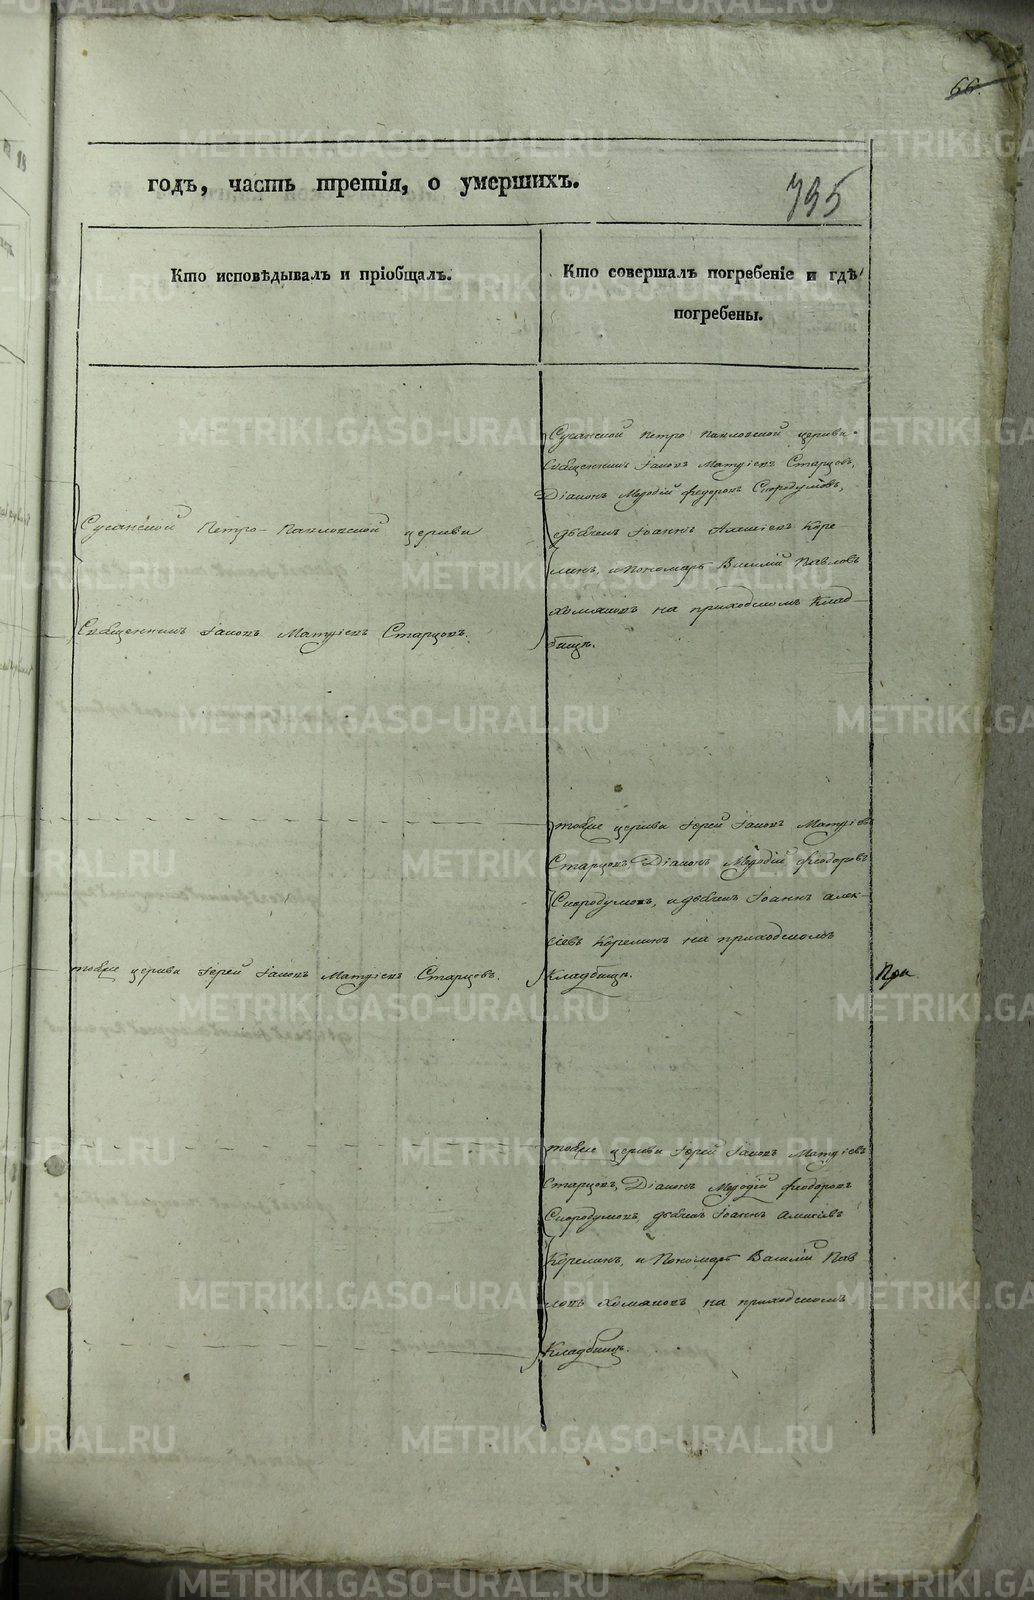 66.
годъ, часть третія, о умершихъ.
795
Кто исповѣдывалъ и пріобщалъ.
Кто совершалъ погребеніе и гдѣ
погребены.
Сусанской Петро-Павловской церкви
Священникъ Іаковъ Матѳіевъ Старцовъ.
Сусанской Петро Павловской церкви
Священникъ Іаковъ Матѳіевъ Старцовъ,
Діаконъ Меѳодій Ѳедоровъ Скородумовъ,
дьячекъ Іоаннъ Алексіевъ Коре
линъ, и Пономарь Василій Павловъ
Хомяковъ на приходскомъ Клад-
бищѣ.
тойже церкви Іерей Іаковъ Матѳіевъ Старцовъ.
тойже церкви Іерей Іаковъ Матѳіевъ
Старцовъ Діаконъ Меѳодій Ѳеодоровъ
Скородумовъ, и дьячекъ Іоаннъ Алек-
сіевъ Корелинъ на приходскомъ
Кладбищѣ.
При
тойже церкви Іерей Іаковъ Матѳіевъ
Старцовъ, Діаконъ Меѳодій Ѳеодоровъ
Скородумовъ, дьячекъ Іоаннъ Алексіевъ
Корелинъ, и Пономарь Василій Пав
ловъ Хомяковъ на приходскомъ
Кладбищѣ.
METRIKI.GASO-URAL.RU